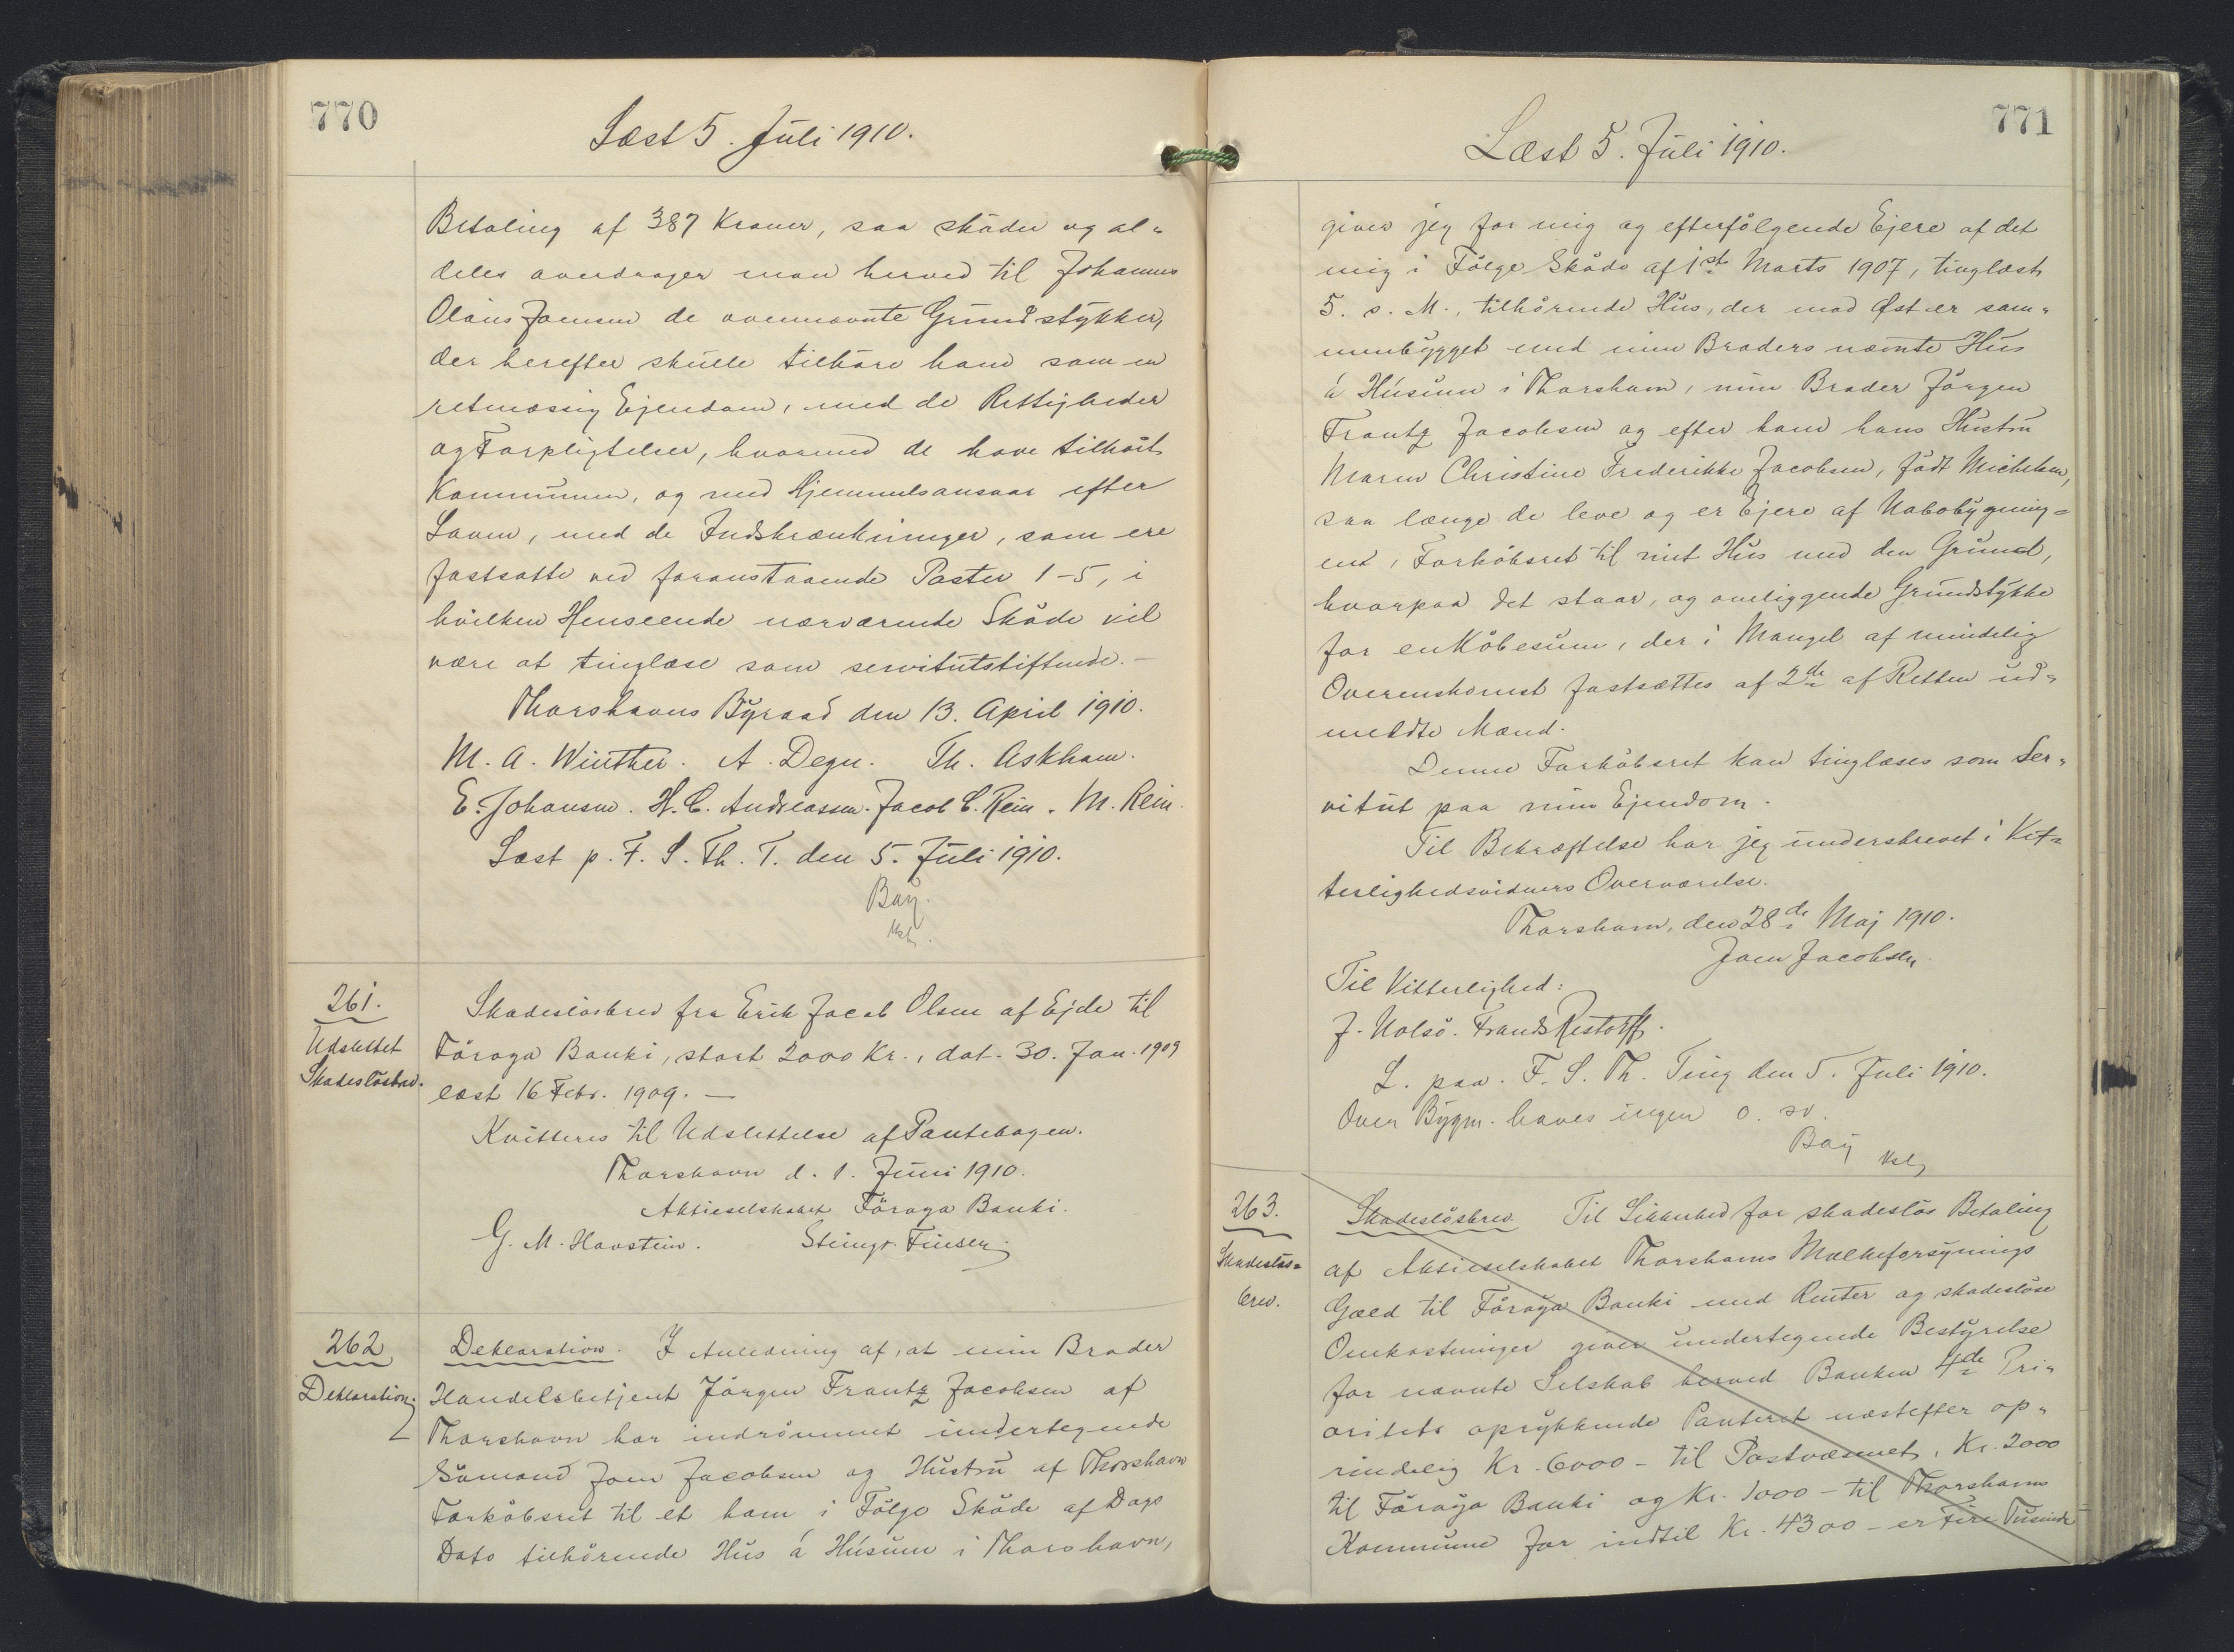 770
Læst 5. Juli 1910.
Betaling af 387 Kroner, saa skøder og al-
deles overdrager man herved til Johannes
Olaus Joensen de ovennævnte Grundstykker,
der herefter skulle tilhøre ham som en
retmæssig Ejendom, med de Rettigheder
og Forpligtelser, hvormed de have tilhørt
Kommunen, og med Hjemmelsansvar efter
Loven, med de Indskrænkninger, som ere
fastsatte ved foranstaaende Poster 1-5, i
hvilken Henseende nærværende Skøde vil
være at tinglæse som servitutstiftende. -
Thorshavns Byraad den 13. April 1910.
M. A. Winther. A. Degn. Th. Askham.
E. Johansen. H. C. Andreassen. Jacob C. Rein. M. Rein.
Læst p. F. S. Th. T. den 5. Juli 1910.
Bay.
Kst.
261.
Udslettet
Skadesløsbrev.
Skadesløsbrev fra Erik Jacob Olsen af Ejde til
Föroya Banki, stort 2000 Kr., dat. 30. Jan. 1909
læst 16 Febr. 1909. -
Kvitteres til Udslettelse af Pantebogen.
Thorshavn d. 1. Juni 1910.
Aktieselskabet Föroya Banki.
G. M. Havstein. Steingr. Finsen.
262
Deklaration.
Deklaration. I Anledning af, at min Broder
Handelsbetjent Jörgen Frantz Jacobsen af
Thorshavn har indrömmet undertegnede
Sømand Joen Jacobsen og Hustru af Thorshavn
Forkøbsret til et ham i Følge Skøde af Dags
Dato tilhørende Hus á Húsum i Thorshavn,
771
Læst 5. Juli 1910.
giver jeg for mig og efterfølgende Ejere af det
mig i Følge Skøde af 1st Marts 1907, tinglæst
5. s. M., tilhørende Hus, der mod Øst er sam-
menbygget med min Broders nævnte Hus
á Húsum i Thorshavn, min Broder Jörgen
Frantz Jacobsen og efter ham hans Hustru
Maren Christine Frederikke Jacobsen, født Michelsen,
saa længe de leve og er Ejere af Nabobygning-
en, Forkøbsret til mit Hus med den Grund,
hvorpaa det staar, og omliggende Grundstykke
for en Købesum, der i Mangel af mindelig
Overenskomst fastsættes af 2de af Retten ud-
meldte Mænd.
Denne Forkøbsret kan tinglæses som Ser-
vitut paa min Ejendom.
Til Bekræftelse har jeg underskrevet i Vit-
terlighedsvidners Overværelse.
Thorshavn, den 28de Maj 1910.
Joen Jacobsen
Til Vitterlighed:
J. Nolsö. Frands Restorff.
L. paa. F. S. Th. Ting den 5. Juli 1910.
Over Bygn. haves ingen o. sv.
Bay
Kst.
263.
Skadesløs-
brev.
Skadesløsbrev. Til Sikkerhed for skadesløs Betaling
af Aktieselskabet Thorshavns Mælkeforsynings
Gæld til Föroya Banki med Renter og skadesløse
Omkostninger giver undertegnede Bestyrelse
for nævnte Selskab herved Banken 4de Pri-
oritets oprykkende Panteret næstefter op-
rindelig Kr. 6000 - til Postvæsenet, Kr. 2000
til Föroya Banki og Kr. 1000 - til Thorshavns
Kommune for indtil Kr. 4300 - er Fire Tusinde